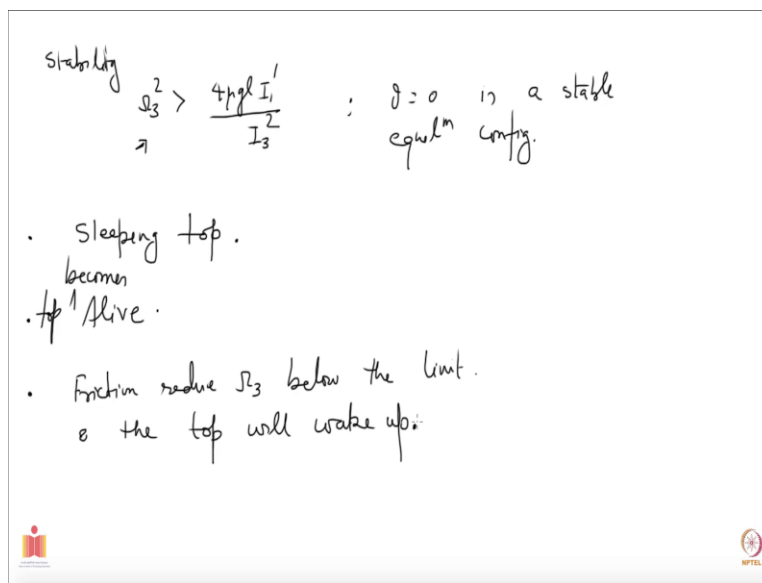 Stability
Ω₃² > 4μgl I₁' / I₃² : θ = 0 is a stable
equilᵐ config.
. Sleeping top.
becomes
. top ^ Alive.
. Friction reduce Ω₃ below the limit.
& the top will wake up.
NPTEL